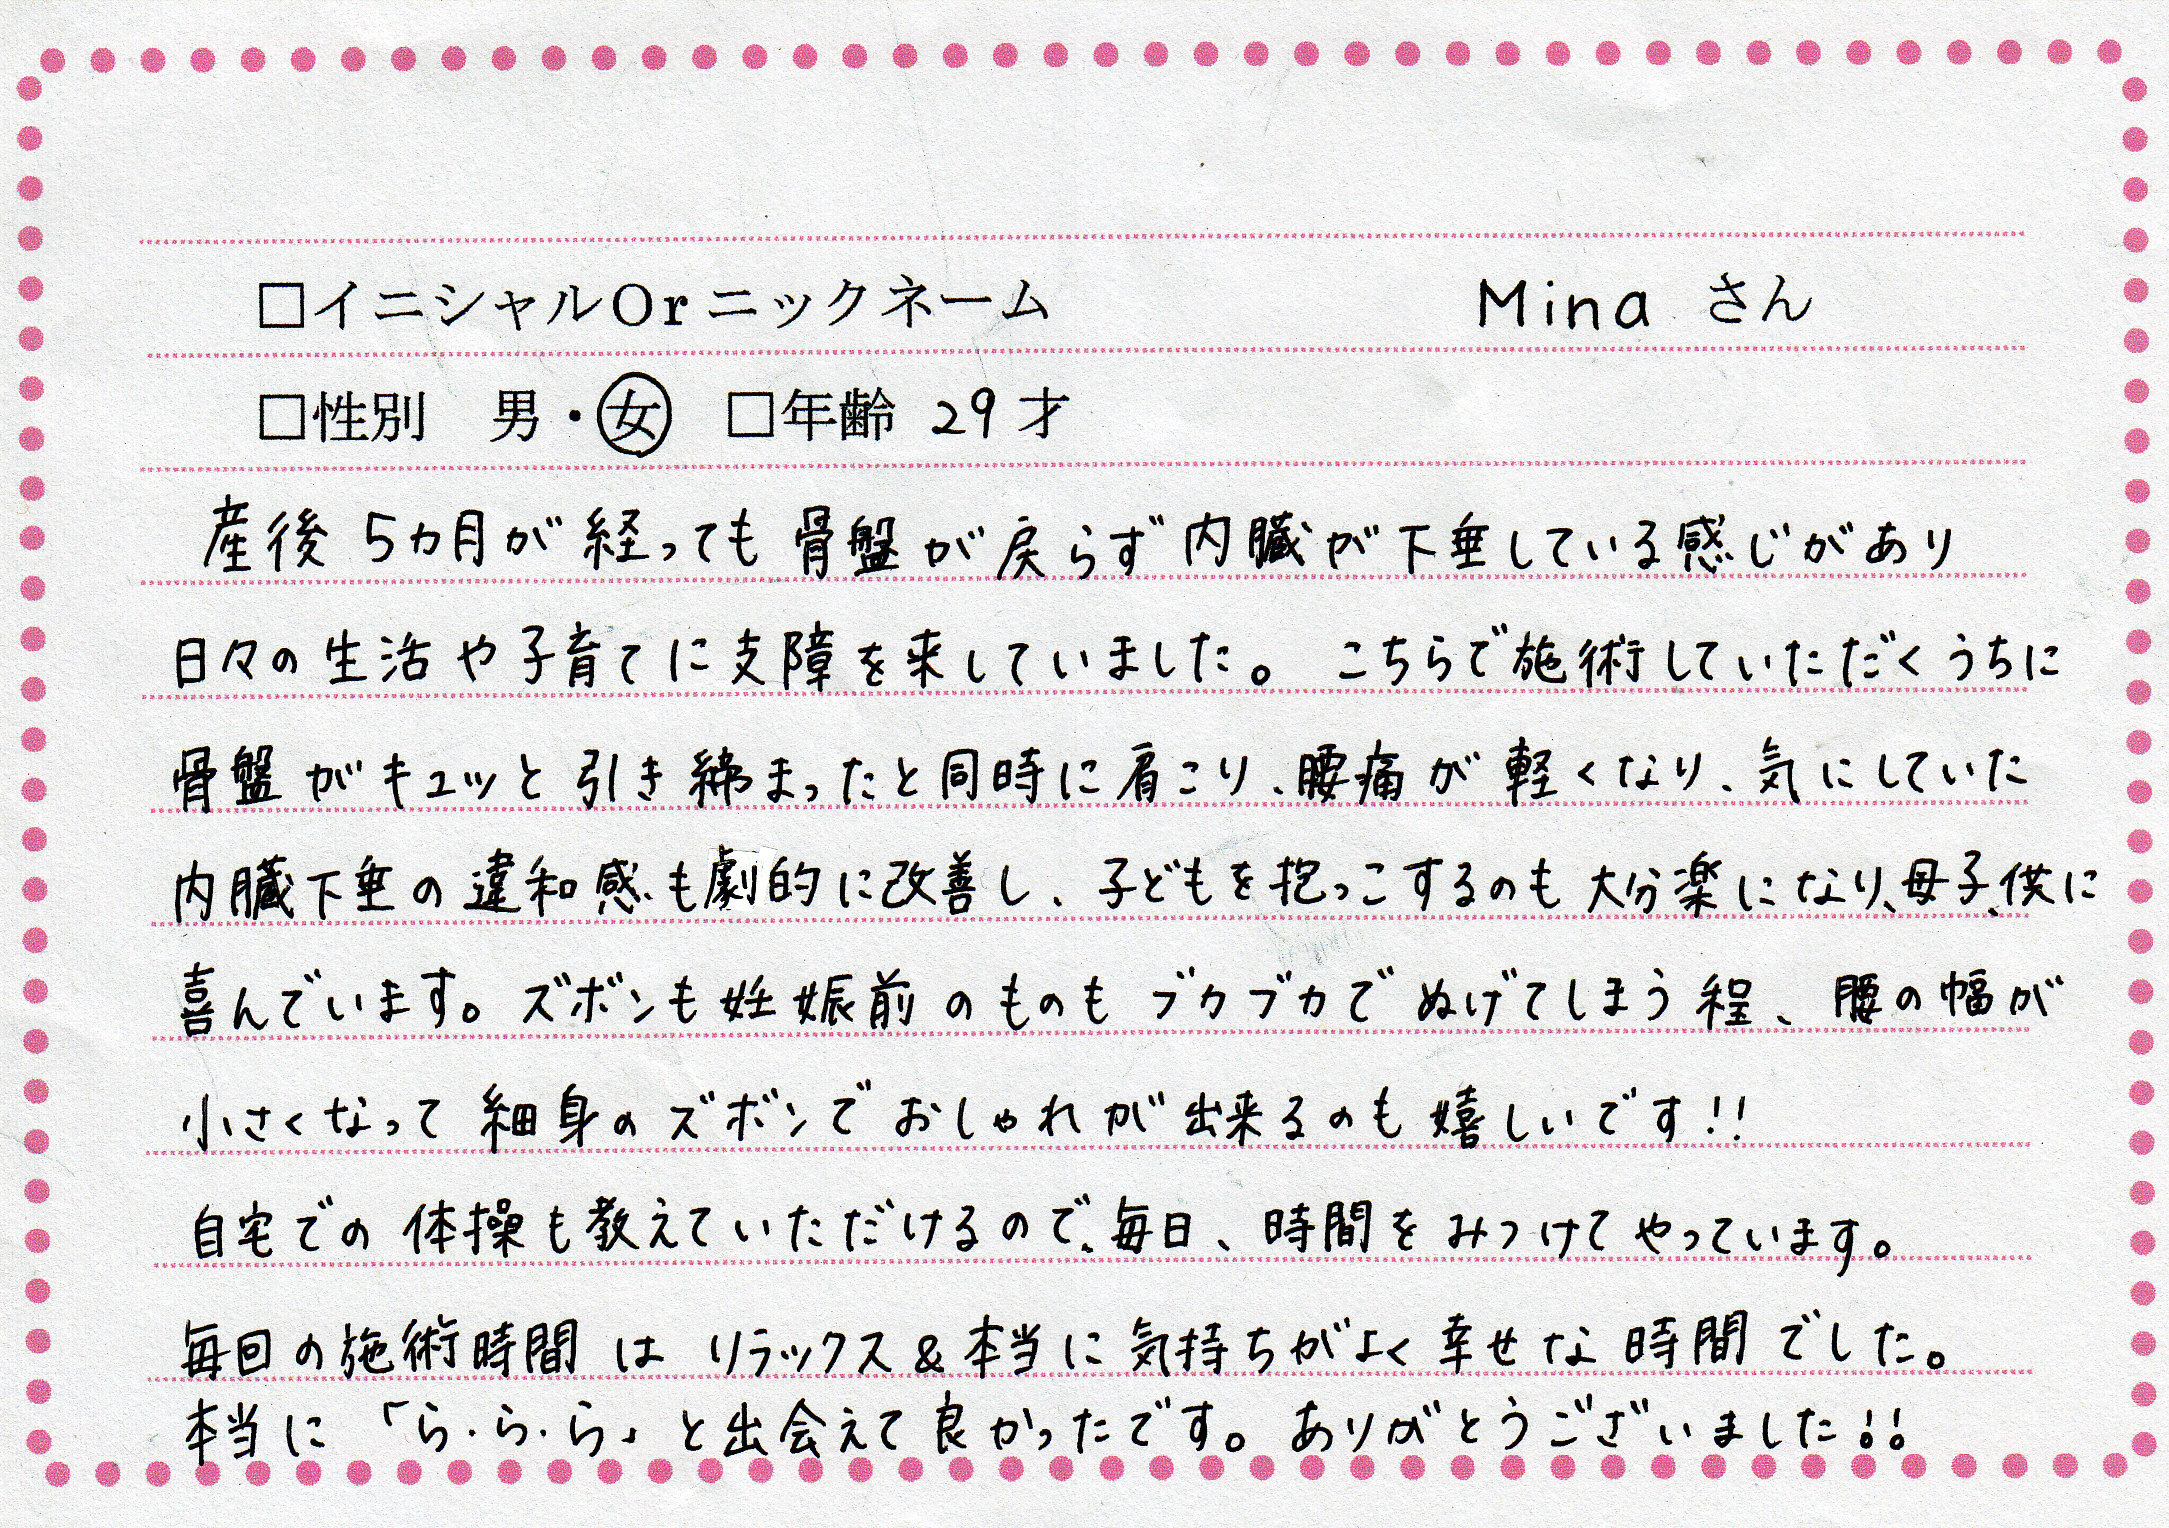 □イニシャルOrニックネーム Mina さん
□性別 男・女 □年齢 29才
産後5カ月が経っても骨盤が戻らず内臓が下垂している感じがあり
日々の生活や子育てに支障を来していました。こちらで施術していただくうちに
骨盤がキュッと引き締まったと同時に肩こり、腰痛が軽くなり、気にしていた
内臓下垂の違和感も劇的に改善し、子どもを抱っこするのも大分楽になり、母子、供に
喜んでいます。ズボンも妊娠前のものもブカブカでぬげてしまう程、腰の幅が
小さくなって細身のズボンでおしゃれが出来るのも嬉しいです!!
自宅での体操も教えていただけるので、毎日、時間をみつけてやっています。
毎回の施術時間はリラックス&本当に気持ちがよく幸せな時間でした。
本当に「ら・ら・ら」と出会えて良かったです。ありがとうございました!!